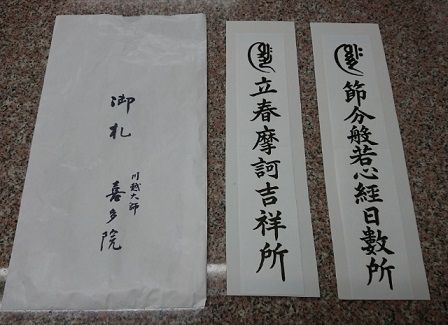 節分般若心経日數所
立春摩訶吉祥所
御札
川越大師
喜多院